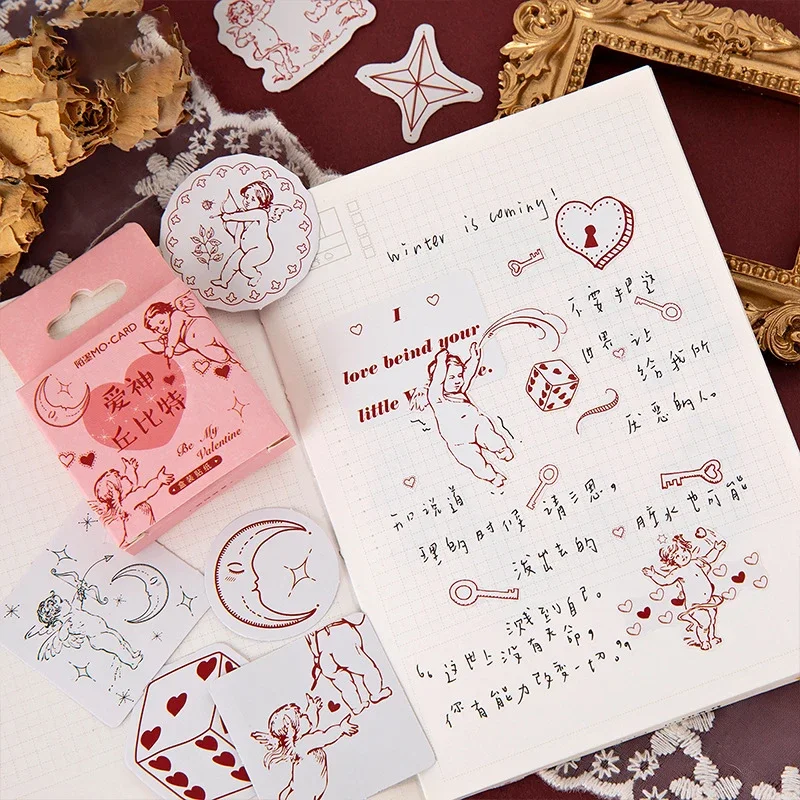 Winter is coming!
不要把这
世界 让
给我所
厌恶的人。
I
love beind your
little
说道
理的时候 请三思。
泼出去的
脏水也可能
溅到自己。
“这世上没有天命，
你有能力改变一切。”
陌墨MO·CARD
爱神
丘比特
Be My
Valentine
盒装贴纸